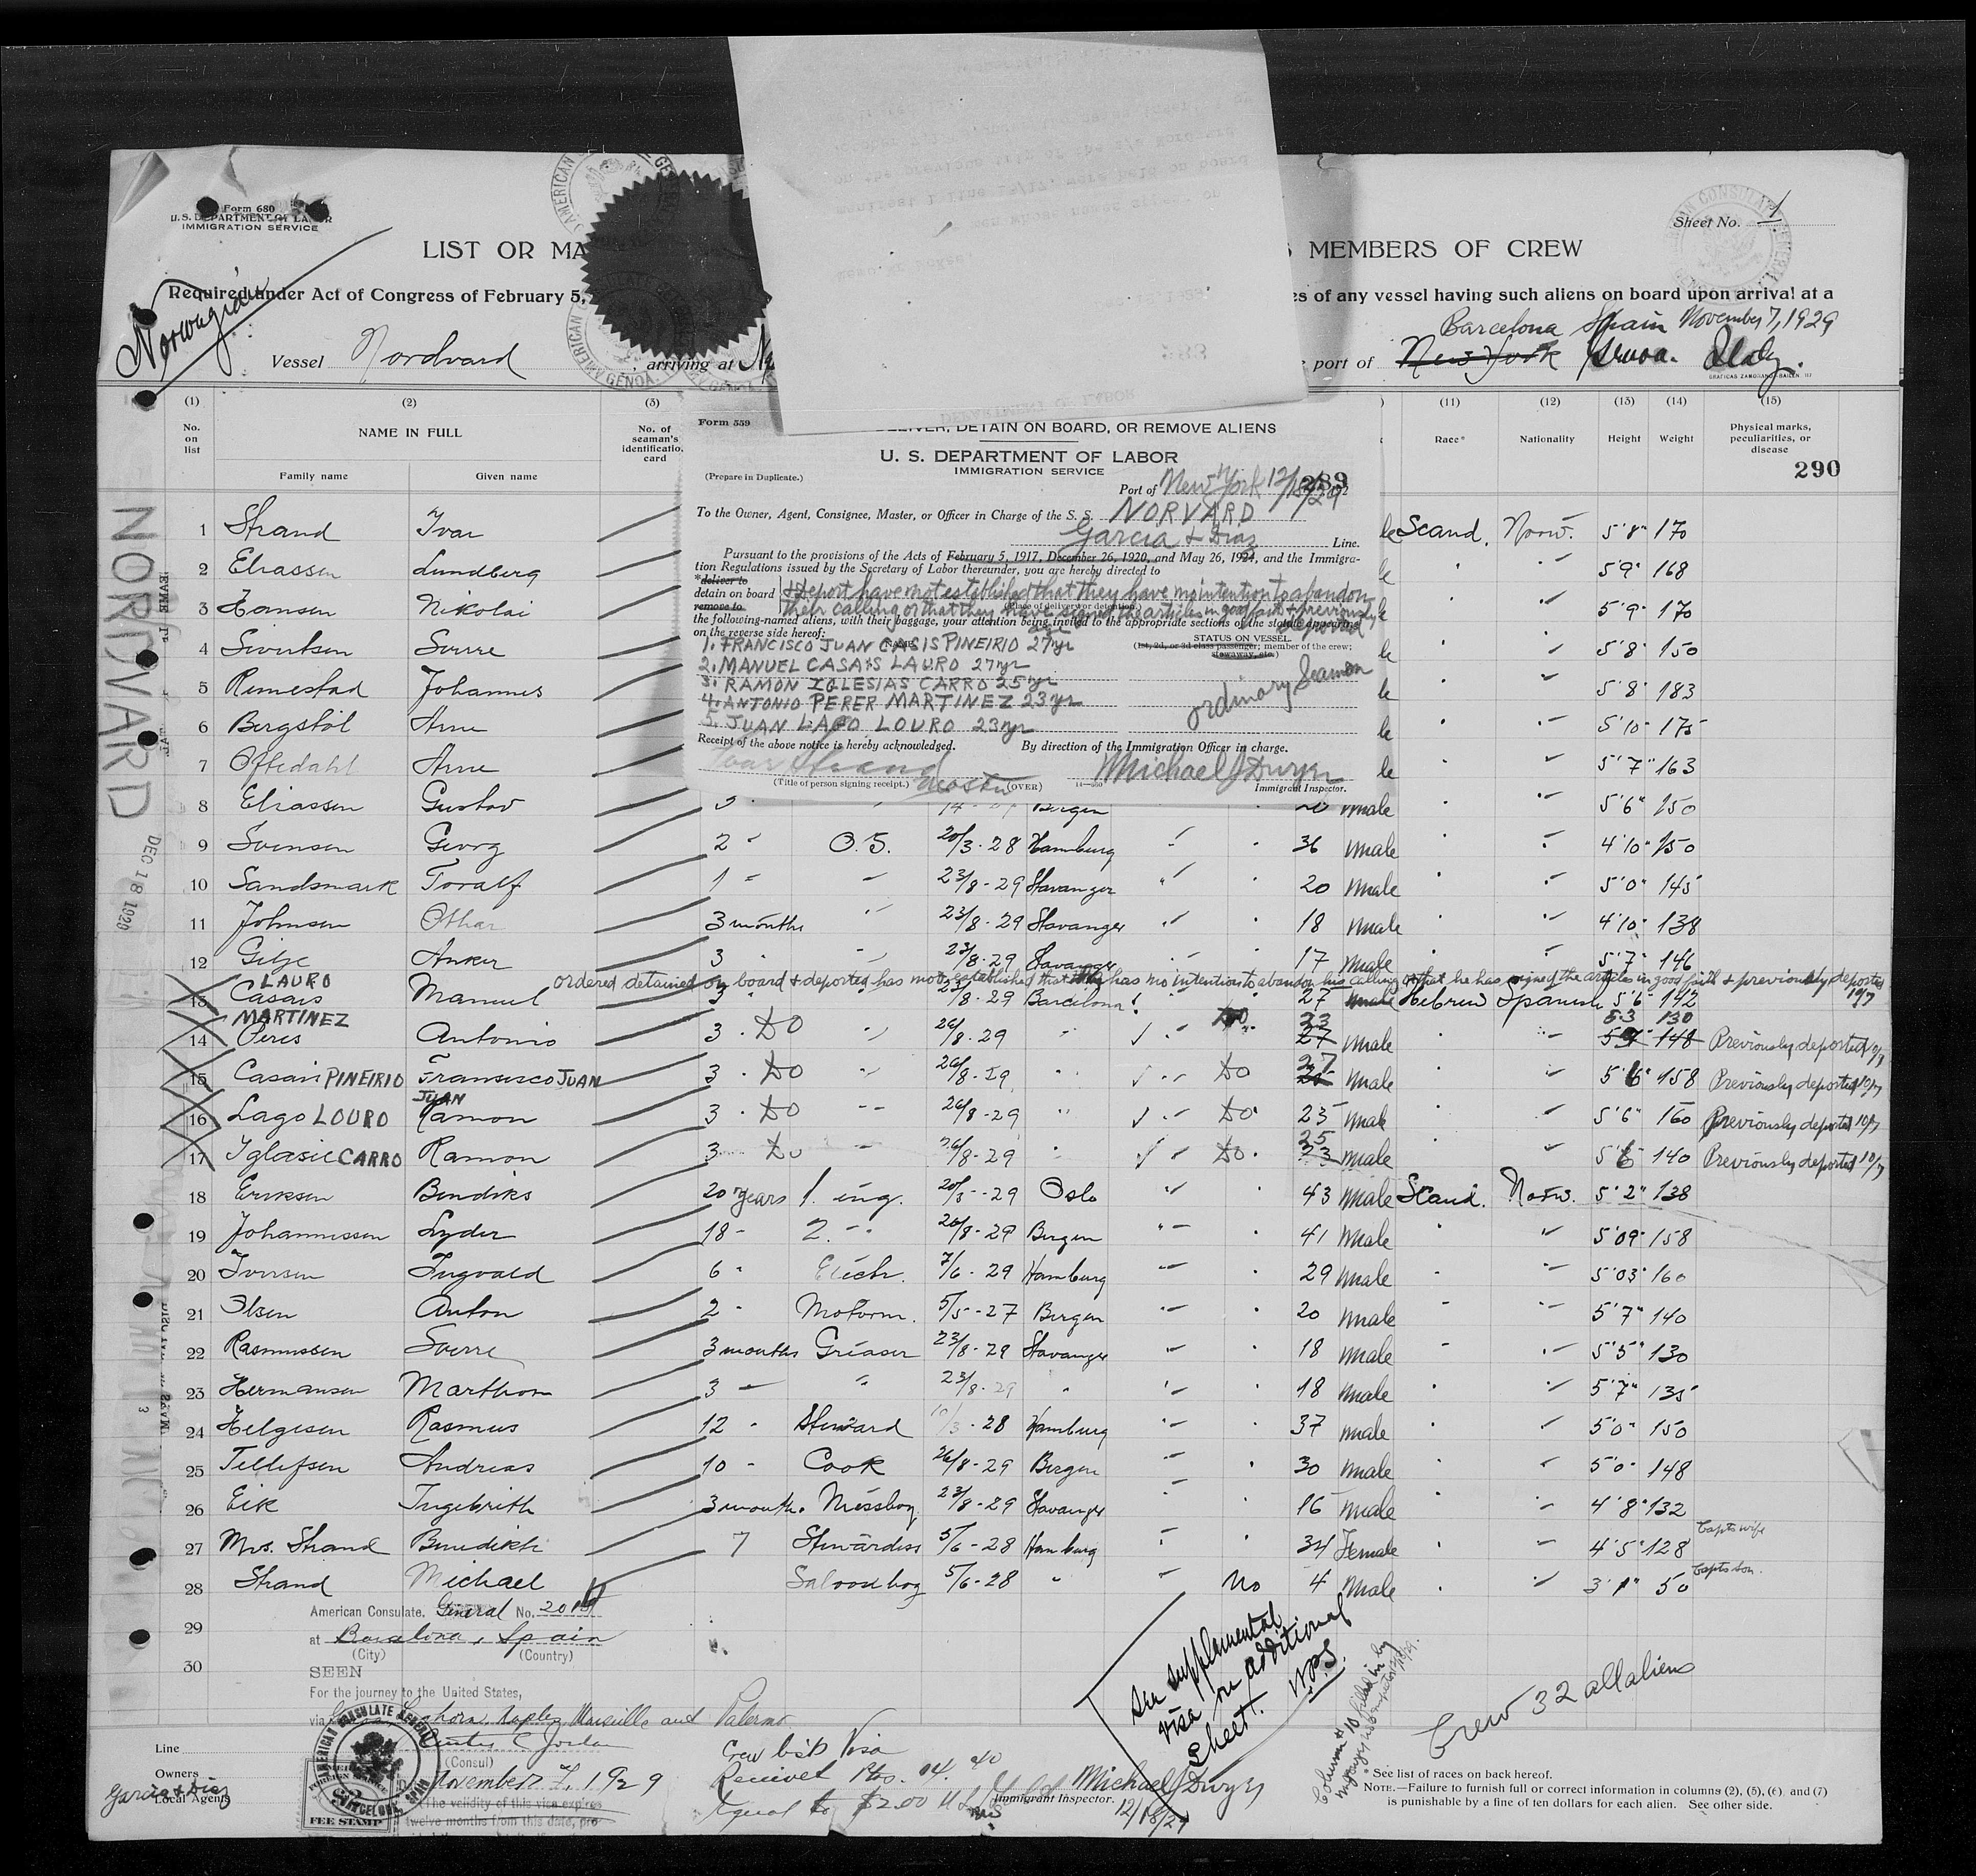 Form 680
U. S. DEPARTMENT OF LABOR
IMMIGRATION SERVICE
Sheet No. 1
LIST OR MA
S MEMBERS OF CREW
Norwegian
Required under Act of Congress of February 5,
es of any vessel having such aliens on board upon arrival at a
Barcelona Spain November 7, 1929
Vessel Nordvard, arriving at
port of New York Genoa. Italy.
(1) (2) (3) (11) (12) (13) (14) (15)
No. on list
NAME IN FULL
Family name Given name
No. of seaman's identification card
Race* Nationality Height Weight Physical marks, peculiarities, or disease
290
Form 559
DELIVER, DETAIN ON BOARD, OR REMOVE ALIENS
U. S. DEPARTMENT OF LABOR
IMMIGRATION SERVICE
(Prepare in Duplicate.)
289
Port of New York 12/18/29
To the Owner, Agent, Consignee, Master, or Officer in Charge of the S. S. NORVARD
Garcia & Diaz Line.
Pursuant to the provisions of the Acts of February 5, 1917, December 26, 1920, and May 26, 1924, and the Immigra-
tion Regulations issued by the Secretary of Labor thereunder, you are hereby directed to
*deliver to
detain on board
remove to
& deport have not established that they have no intention to abandon
their calling or that they have signed the articles in good faith & previously deported
(Place of delivery or detention.)
the following-named aliens, with their baggage, your attention being invited to the appropriate sections of the statute appearing
on the reverse side hereof:
age
STATUS ON VESSEL
(1st, 2d, or 3d class passenger; member of the crew; stowaway, etc.)
1. FRANCISCO JUAN CASIS PINEIRIO 27 yr
2. MANUEL CASAIS LAURO 27 yr
3. RAMON IGLESIAS CARRO 25 yr
4. ANTONIO PERER MARTINEZ 23 yr
5. JUAN LAGO LOURO 23 yr
ordinary Seamen
Receipt of the above notice is hereby acknowledged.
By direction of the Immigration Officer in charge.
Ivar Strand
Michael J Dwyer
(Title of person signing receipt.) Master (OVER)
Immigrant Inspector.
NORDVARD
DEC 18 1929
1 Strand Ivar Scand. Norw. 5'8" 170
2 Eliassen Lundberg 5'9" 168
3 Hansen Nikolai 5'9" 170
4 Sivertsen Sverre 5'8" 150
5 Rimestad Johannes 5'8" 183
6 Bergstøl Arne 5'10" 175
7 Oftedahl Arne 5'7" 163
8 Eliassen Gustav Bergen male 5'6" 150
9 Svensen Georg 2 " O.S. 20/3-28 Hamburg 36 male 4'10" 150
10 Sandsmark Toralf 1 " 23/8-29 Stavanger 20 male 5'0" 145
11 Johnsen Othar 3 months 23/8-29 Stavanger 18 male 4'10" 138
12 Gilje Anker 3 23/8-29 Stavanger 17 male 5'7" 146
ordered detained on board & deported has not established that he has no intention to abandon his calling or that he has signed the articles in good faith & previously deported 10/7
13 Casais LAURO Manuel 3 8-29 Barcelona 27 male Hebrew Spanish 5'6" 142
14 Peres MARTINEZ Antonio 3 DO 26/8-29 DO 23 27 male 53 130 148 Previously deported 10/7
15 Casais PINEIRIO Fransisco JUAN 3 DO 26/8-29 DO 27 male 5'6" 158 Previously deported 10/7
16 Lago LOURO JUAN Ramon 3 DO 26/8-29 DO 23 male 5'6" 160 Previously deported 10/7
17 Iglasie CARRO Ramon 3 DO 26/8-29 DO 25 23 male 5'6" 140 Previously deported 10/7
18 Eriksen Bendiks 20 years 1. eng. 29 Oslo 43 male Scand. Norw. 5'2" 138
19 Johannessen Lyder 18 - 2. - 26/8-29 Bergen 41 male 5'09" 158
20 Iversen Ingvald 6 " Electr. 7/6-29 Hamburg 29 male 5'03" 160
21 Olsen Anton 2 - Motorm. 5/5-27 Bergen 20 male 5'7" 140
22 Rasmussen Sverre 3 months Greaser 23/8-29 Stavanger 18 male 5'5" 130
23 Hermansen Marthon 3 - " 23/8-29 " 18 male 5'7" 135
24 Helgesen Rasmus 12 - Steward 10/3-28 Hamburg 37 male 5'0" 150
25 Tellefsen Andreas 10 - Cook 26/8-29 Bergen 30 male 5'0" 148
26 Eik Ingebrith 3 month. Messboy 23/8-29 Stavanger 16 male 4'8" 132
27 Mrs. Strand Benedikte 7 Stewardess 5/6-28 Hamburg 34 Female 4'5" 128 Capts wife
28 Strand Michael Saloonboy 5/6-28 " No 4 male 3'1" 50 Capts son.
29
30
American Consulate. General No. 2018
at Barcelona, Spain
(City) (Country)
SEEN
For the journey to the United States,
via Genoa, Leghorn, Naples, Marseille and Palermo
Curtis C. Jordan
(Consul)
November 7, 1929
The validity of this visa expires
twelve months from this date, pro-
AMERICAN CONSULATE GENERAL BARCELONA, SPAIN
FEE STAMP
Line
Owners
Local Agents
Garcia & Diaz
Crew list Visa
Received Pts. 14.40
Equal to $2.00 U.S.
See supplemental visa on additional sheet. W.P.S.
Michael J Dwyer
Immigrant Inspector.
12/18/29
Crew 32 all aliens
* See list of races on back hereof.
NOTE.—Failure to furnish full or correct information in columns (2), (5), (6) and (7)
is punishable by a fine of ten dollars for each alien. See other side.